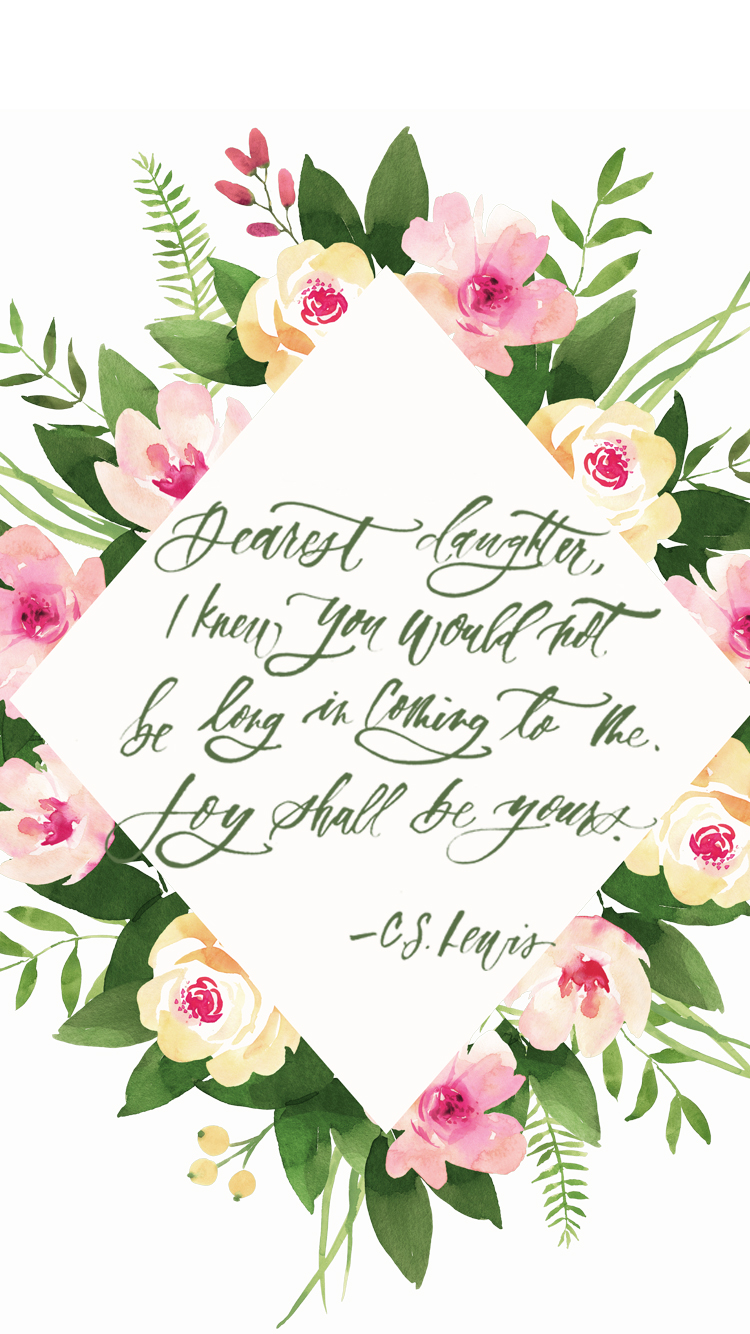 Dearest daughter,
I knew you would not
be long in coming to me.
Joy shall be yours.
—C.S. Lewis